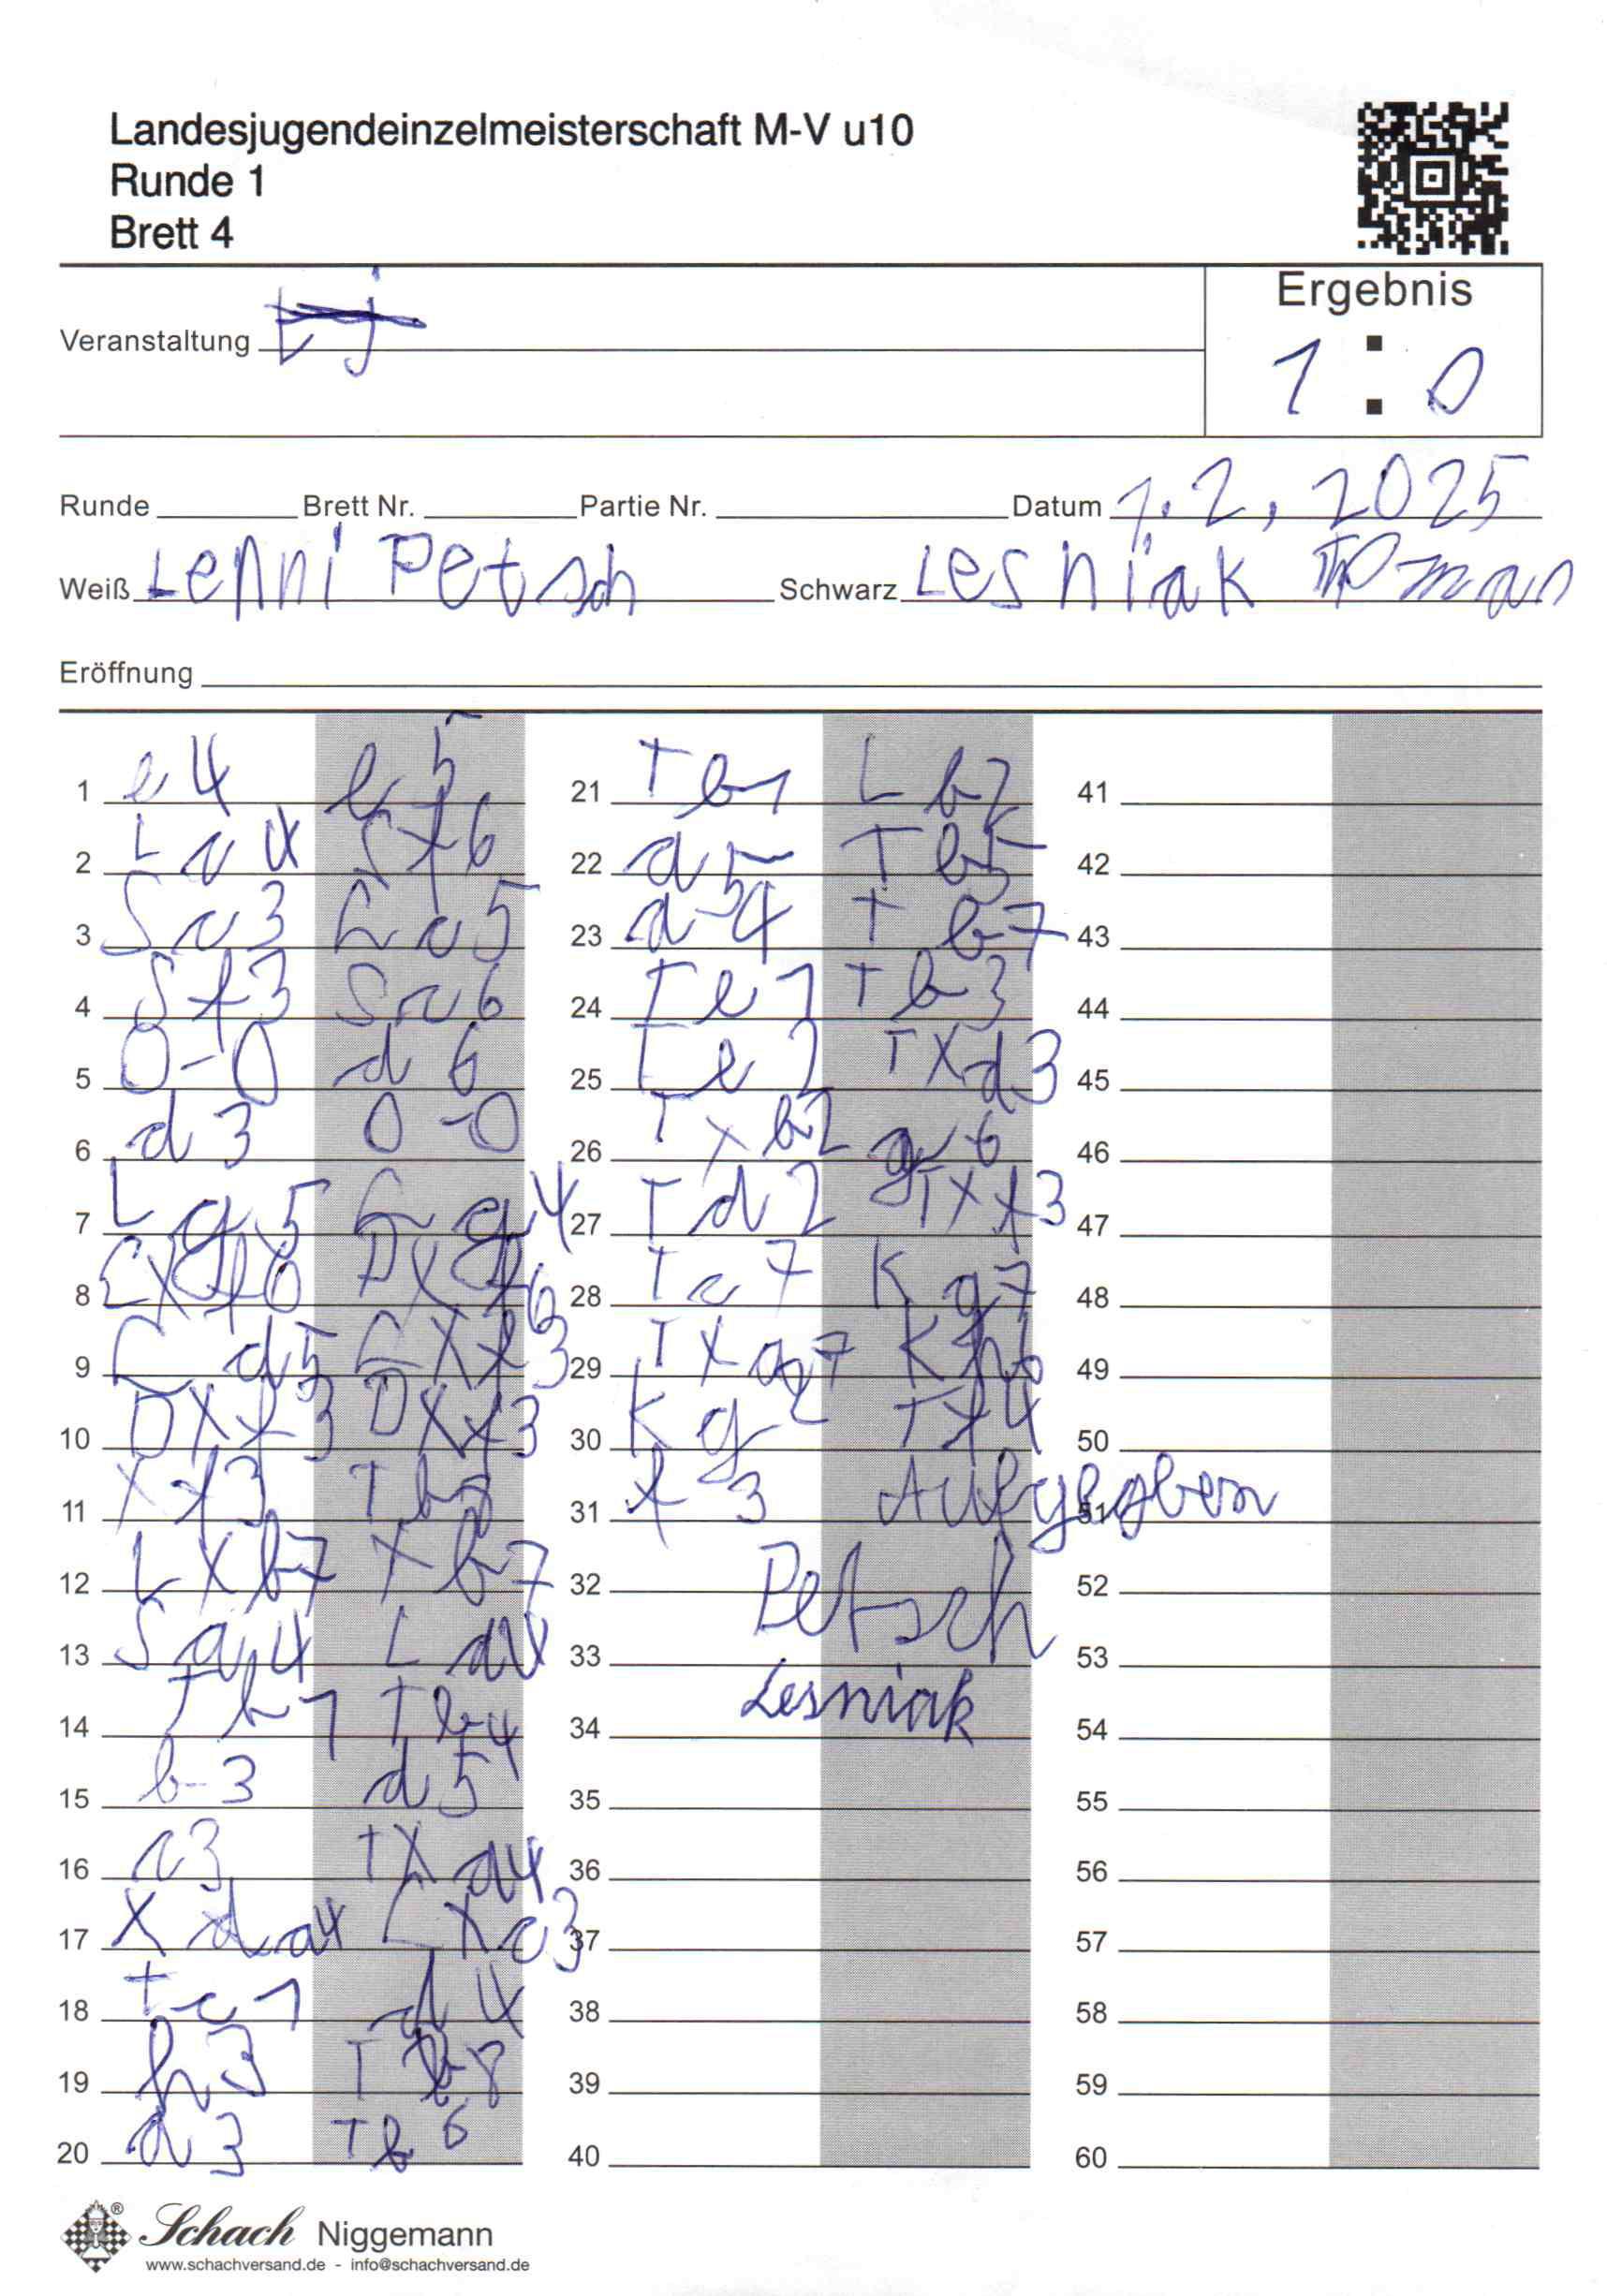 Landesjugendeinzelmeisterschaft M-V u10
Runde 1
Brett 4
Ergebnis
Veranstaltung Lj
1 : 0
Runde Brett Nr. Partie Nr. Datum 1.2, 2025
Weiß Lenni Petsch Schwarz Lesniak
Eröffnung
1 e4 e5 21 Tb1 Lb2 41
2 Lc4 Sf6 22 a5 Tb5 42
3 Sc3 Lc5 23 a4 Tb7 43
4 Sf3 Sc6 24 Te1 Tb3 44
5 0-0 d6 25 Te2 Txd3 45
6 d3 0-0 26 Txb2 g6 46
7 Lg5 Lg4 27 Td2 Txf3 47
8 Lxf6 Dxf6 28 Tc7 Kg7 48
9 Ld5 Lxf3 29 Txa7 Kh6 49
10 Dxf3 Dxf3 30 Kg2 Tf4 50
11 xf3 Tb8 31 f3 Aufgegeben 51
12 Lxb7 xb7 32 Petsch 52
13 Sa4 Ld4 33 Lesniak 53
14 Tb1 Tb4 34 54
15 b3 d5 35 55
16 c3 Txa4 36 56
17 xa4 Lxc3 37 57
18 Tc1 d4 38 58
19 h3 Tb8 39 59
20 a3 Tb6 40 60
Schach Niggemann
www.schachversand.de - info@schachversand.de